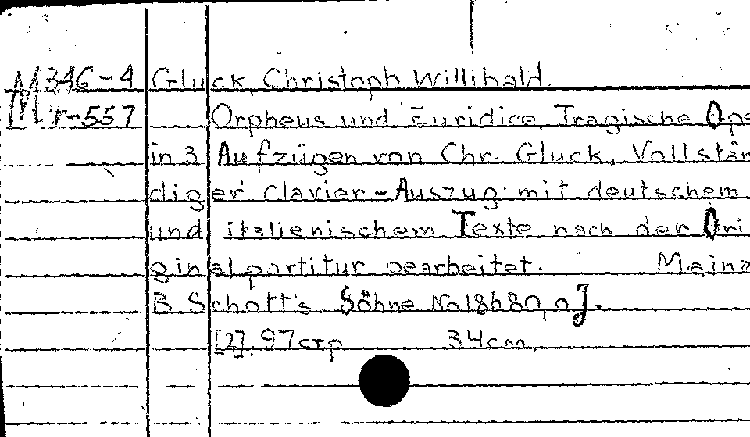 M346-4 Gluck, Christoph Willibald.
Mr-557 Orpheus und Euridice, Tragische Ope
in 3 Aufzügen von Chr. Gluck. Vollstän
diger Clavier-Auszug mit deutschem
und italienischem Texte nach der Ori
ginalpartitur bearbeitet. Mainz
B. Schott's Söhne o J.
97 стр 34cm.